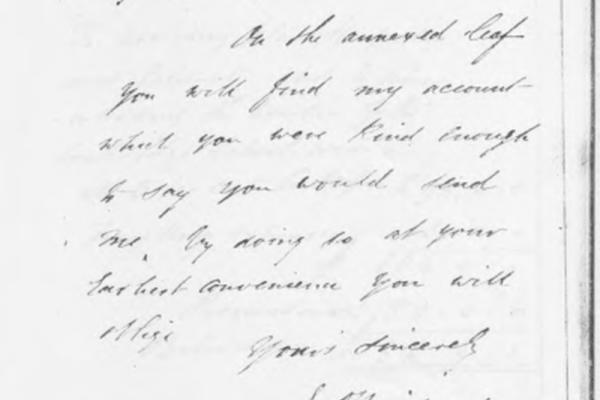 On the annexed leaf
You will find my account
which you were kind enough
to say you would send
me, by doing so at your
Earliest convenience you will
oblige
Yours sincerely